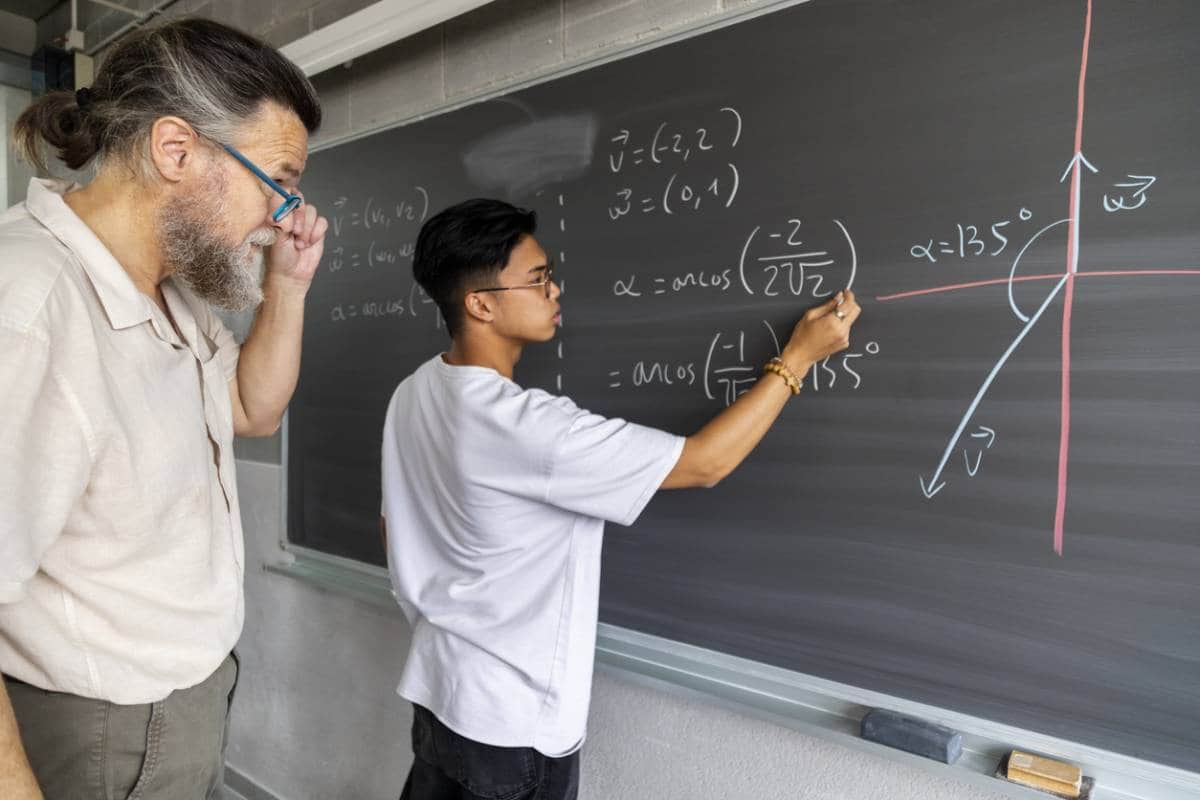 v⃗ = (v₁, v₂)
w⃗ = (w₁, w
α = arccos (
v⃗ = (-2, 2)
w⃗ = (0, 1)
α = arcos (-2 / 2√2)
= arcos (-1 / √ ) 135°
α = 135°
w⃗
v⃗